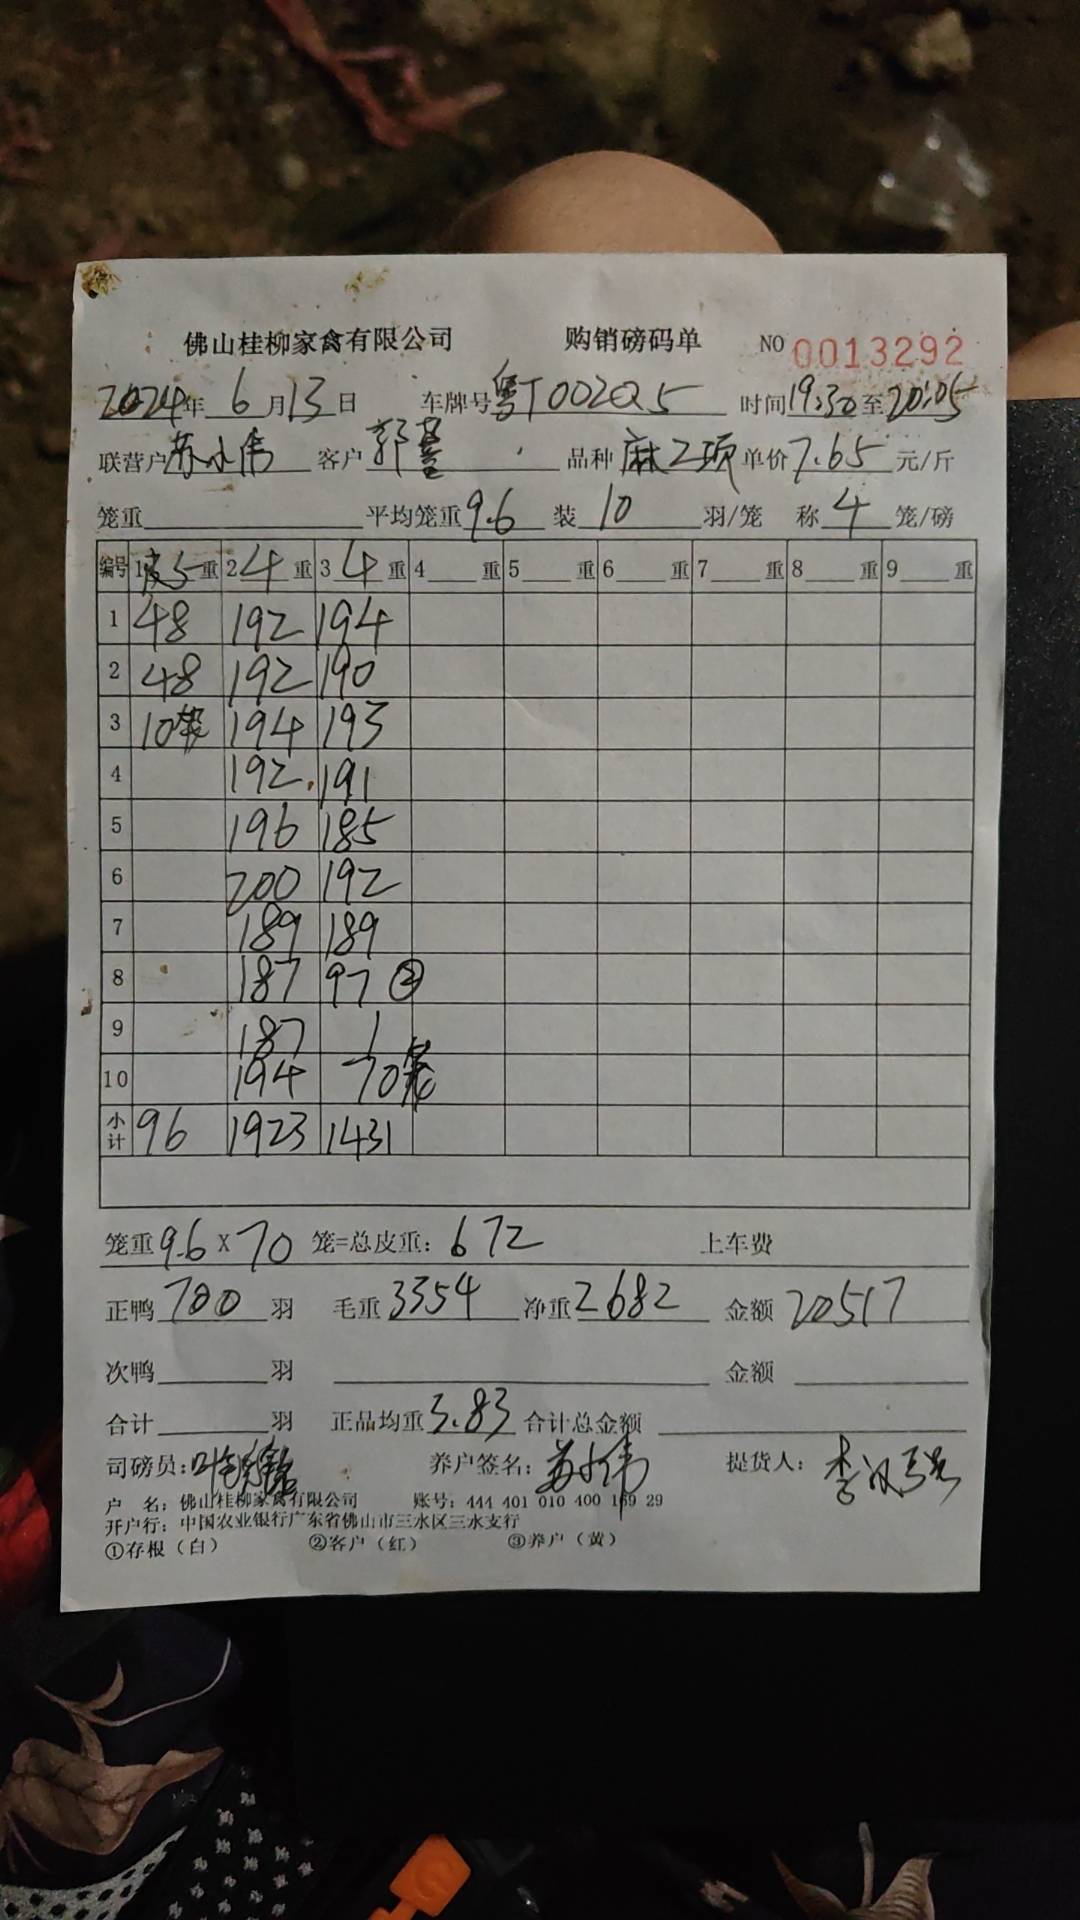 佛山桂柳家禽有限公司 购销磅码单 NO 0013292
2024年 6月13日 车牌号粤T002Q5 时间19:30至20:05
联营户苏小伟 客户郭 品种麻2项单价7.65元/斤
笼重 平均笼重9.6 装10羽/笼 称4笼/磅
编号 1皮5重 2 4重 3 4重 4 重 5 重 6 重 7 重 8 重 9 重
1 48 192 194
2 48 192 190
3 10笼 194 193
4 192 191
5 196 185
6 200 192
7 189 189
8 187 97 ②
9 187 1
10 194 70笼
小计 96 1923 1431
笼重9.6 X 70 笼=总皮重：672 上车费
正鸭700羽 毛重3354 净重2682 金额20517
次鸭 羽 金额
合计 羽 正品均重3.83 合计总金额
司磅员： 养户签名：苏小伟 提货人：李
户 名：佛山桂柳家禽有限公司 账号：444 401 010 400 169 29
开户行：中国农业银行广东省佛山市三水区三水支行
①存根（白） ②客户（红） ③养户（黄）